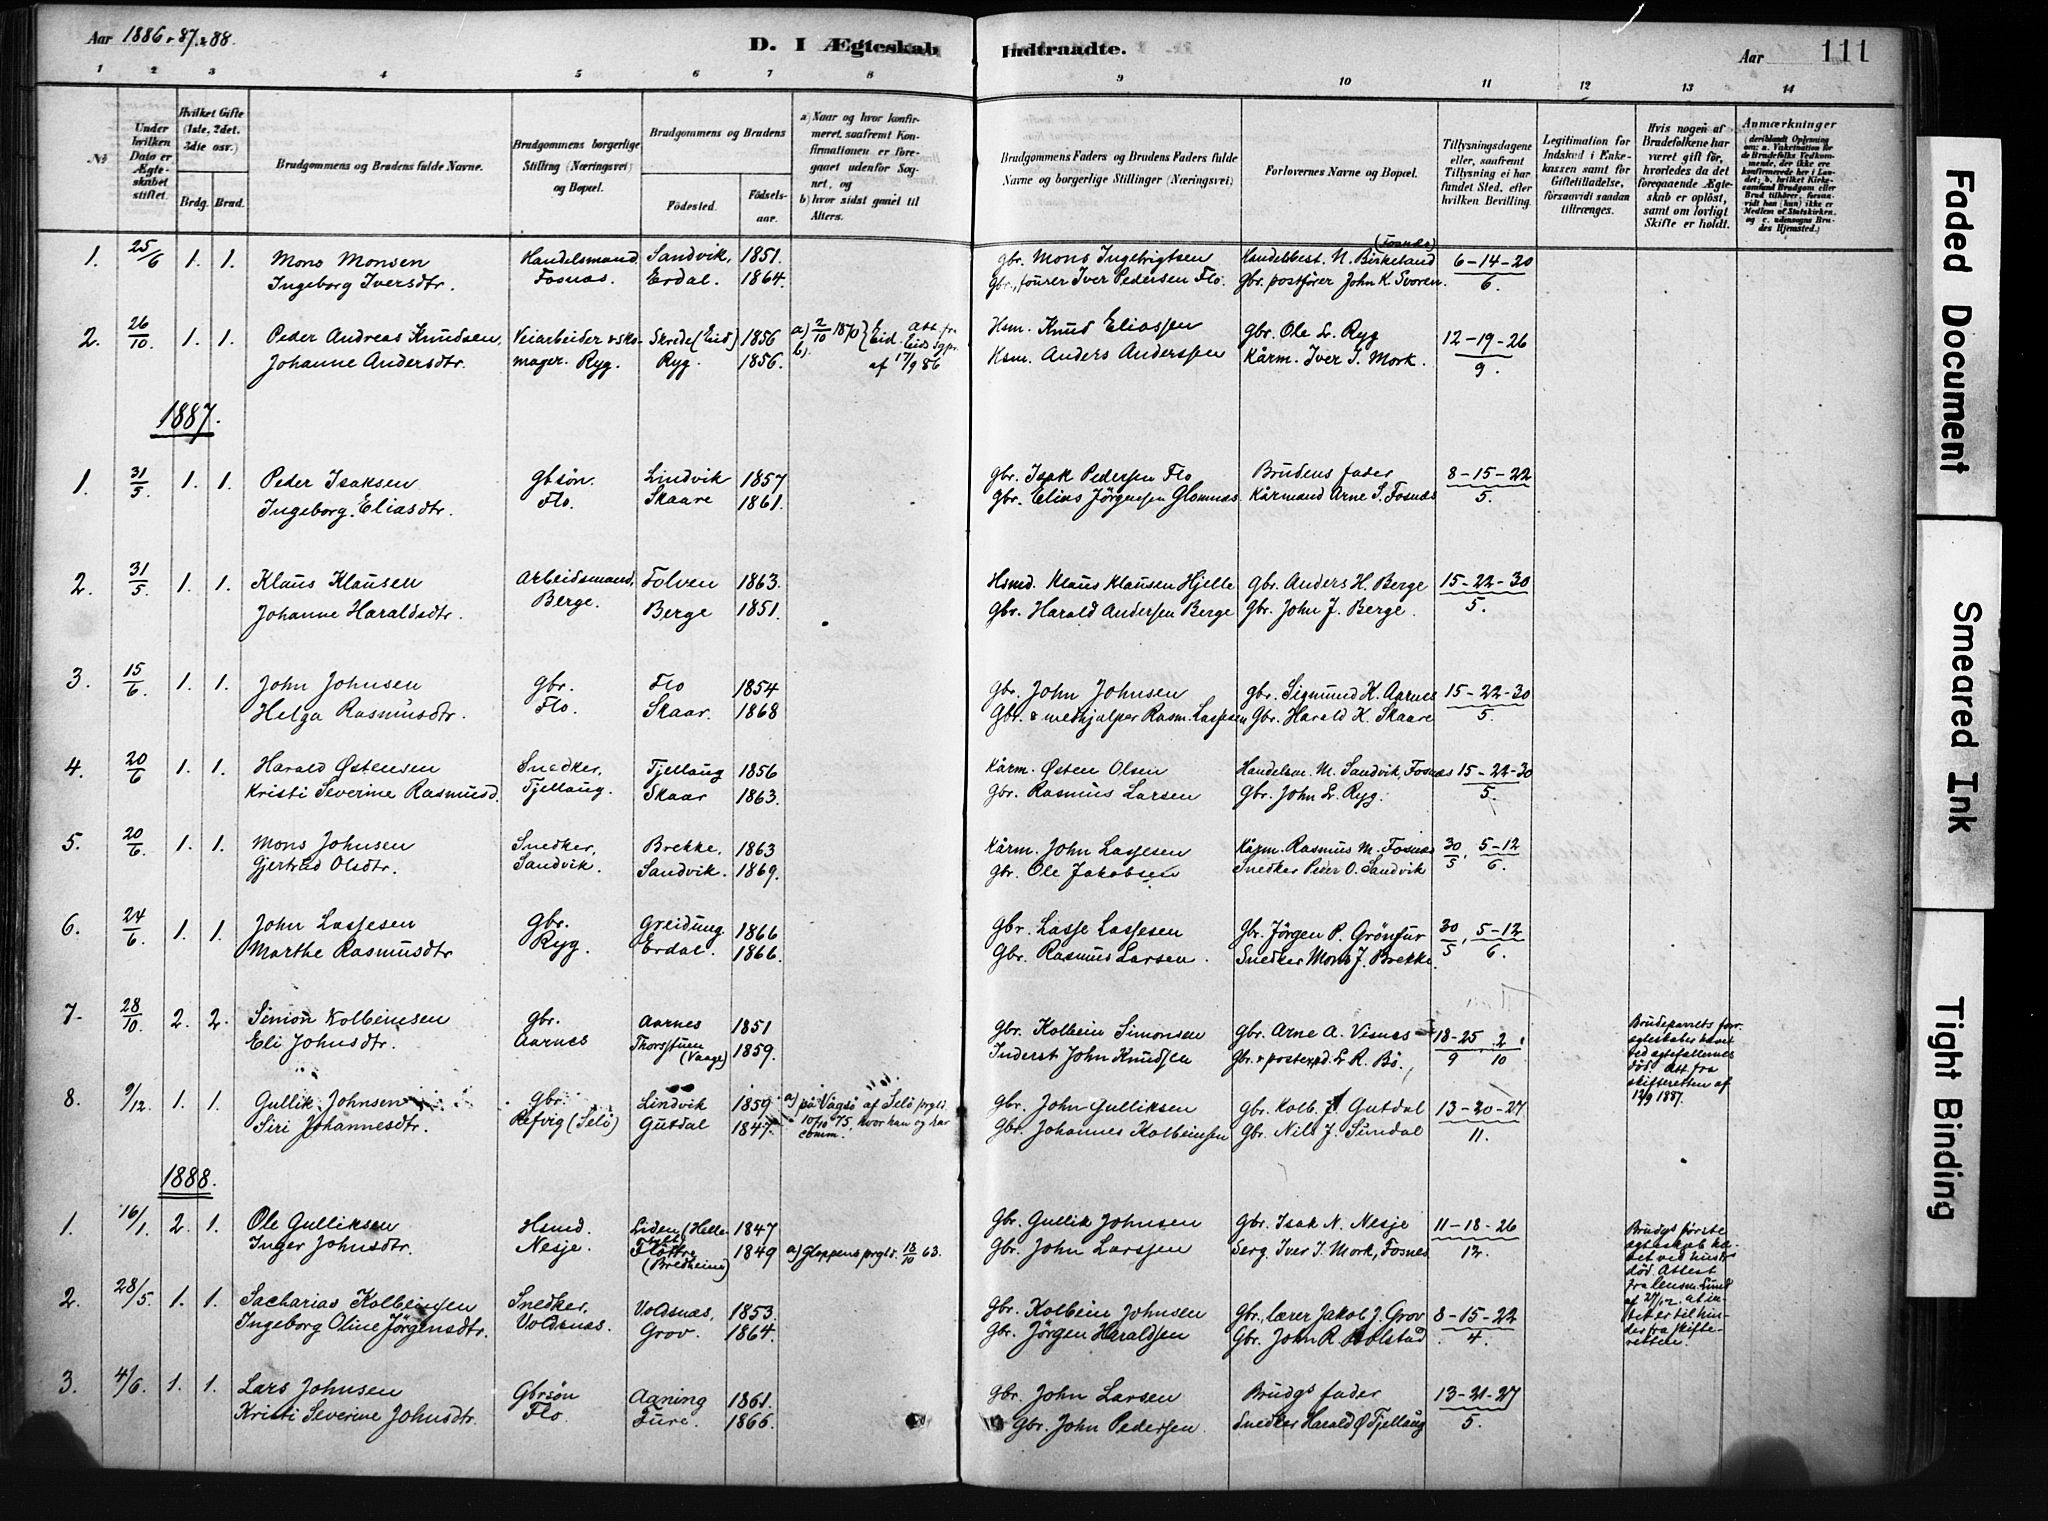 Aar 1886, 87 & 88.
D. I Ægteskab Indtraadte.
Aar 111
1 2 3 4 5 6 7 8 9 10 11 12 13 14
No
Under hvilken Dato er Ægteskabet stiftet.
Hvilket Gifte (1ste, 2det, 3die osv.)
Brdg. Brud.
Brudgommens og Brudens fulde Navne.
Brudgommens borgerlige Stilling (Næringsvei) og Bopæl.
Brudgommens og Brudens
Fødested.
Fødselsaar.
a) Naar og hvor konfirmeret, saafremt Konfirmationen er foregaaet udenfor Sognet, og
b) hvor sidst gaaet til Alters.
Brudgommens Faders og Brudens Faders fulde Navne og borgerlige Stillinger (Næringsvei)
Forlovernes Navne og Bopæl.
Tillysningsdagene eller, saafremt Tillysning ei har fundet Sted, efter hvilken Bevilling.
Legitimation for Indskud i Enkekassen samt for Giftetilladelse, forsaavidt saadan tiltrænges.
Hvis nogen af Brudefolkene har været gift før, hvorledes da det foregaaende Ægteskab er opløst, samt om lovligt Skifte er holdt.
Anmærkninger
(deriblandt Oplysning om: a. Vakcination for de Brudefolks Vedkommende, der ikke ere konfirmerede her i Landet; b. hvilket Kirkesamfund Brudgom eller Brud tilhører, forsaavidt han (hun) ikke er Medlem af Statskirken, og c. udensogns Brudes Hjemsted.)
1. 25/6 1. 1. Mons Monsen Handelsmand Sandvik, 1851. gbr. Mons Ingebrigtsen Handelsbest. N. Birkeland (Fosnæs) 6-14-20
Ingeborg Iversdtr. Fosnæs. Erdal. 1864. Gbr., fourer Iver Pedersen Flo. Gbr. postfører John K. Svoren. 6.
2. 26/10 1. 1. Peder Andreas Knudsen Veiarbeider & sko- Skrede (Eid) 1856 a) 2/10 1870 Eid. Att. fra Eids sgpr. Hsm. Knud Eliassen Gbr. Ole L. Ryg 12-19-26
Johanne Andersdtr. mager. Ryg. Ryg. 1856. b) af 17/9 86 Hsm. Anders Anderssen Kårm. Iver I. Mork. 9.
1887.
1. 31/5. 1. 1. Peder Isaksen Gbsøn. Lindvik 1857 Gbr. Isak Pedersen Flo Brudens fader 8-15-22
Ingeborg Eliasdtr. Flo. Skaare 1861. Gbr. Elias Jörgensen Glomnæs Kårmand Arne S. Fosnæs 5.
2. 31/5. 1. 1. Klaus Klausen Arbeidsmand, Folven 1863. Hsmd. Klaus Klausen Hjelle Gbr. Anders H. Berge 15-22-30
Johanne Haraldsdtr. Berge. Berge 1851. Gbr. Harald Andersen Berge Gbr. John J. Berge. 5.
3. 15/6. 1. 1. John Johnsen Gbr. Flo 1854 Gbr. John Johnsen Gbr. Sigmund K. Aarnes 15-22-30
Helga Rasmusdtr. Flo. Skaar. 1868 Gbr. & medhjalper Rasm. Lassesen Gbr. Harald K. Skaare 5.
4. 20/6 1. 1. Harald Østensen Snedker, Tjellaug 1856 Kårm. Østen Olsen Handelsm. M. Sandvik, Fosnæs 15-22-30
Kristi Severine Rasmusd. Tjellaug. Skaar 1863. Gbr. Rasmus Larsen Gbr. John L. Ryg. 5.
5. 20/6. 1. 1. Mons Johnsen Snedker, Brekke. 1863 Kårm. John Lassesen Kårm. Rasmus M. Fosnæs 30/5, 5-12
Gjertrud Olsdtr. Sandvik. Sandvik. 1869. Gbr. Ole Jakobsen Snedker Peder O. Sandvik 6.
6. 24/6. 1. 1. John Lassesen Gbr. Greidung 1866 Gbr. Lasse Lassesen Gbr. Jörgen P. Grönfur 30/5, 5-12
Marthe Rasmusdtr Ryg. Erdal. 1866. Gbr. Rasmus Larsen. Snedker Mons J. Brekke. 6.
7. 28/10. 2. 2. Simon Kolbeinsen Gbr. Aarnes 1851 Gbr. Kolbein Simonsen Gbr. Arne A. Visnes 18-25, 2 Brudeparrets forr. ægteskaber hævet ved ægtefællernes død. Att. fra skifteretten af 12/9 1887.
Eli Johnsdtr. Aarnes (Vaage) 1859. Inderst John Knudsen Gbr. & L. R. Bö. 9 10
8. 9/12. 1. 1. Gullik Johnsen Gbr. Lindvik 1859 a) på Vågsö af Selö prgld. 10/10 75, hvor han og har comm. Gbr. John Gulliksen Gbr. Kolb. J. Gutdal 13-20-27
Siri Johannesdtr. Refvig (Selö) Gutdal 1847. Gbr. Johannes Kolbeinsen Gbr. Nils J. Sundal 11.
1888.
1. 16/1. 2. 1. Ole Gulliksen Hsmd. 1847 Gbr. Gullik Johnsen Gbr. Isak N. Nesje 11-18-26 Brudgs første ægteskab hævet ved hustrs død. Attest fra lensm. Lund af 27/12.
Inger Johnsdtr. Nesje. (Bredheim) 1849 a) Gloppens prgld. 18/10 63. Gbr. John Larssen Serg. Iver I. Mork, Fosnes 12.
2. 28/5. 1. 1. Sacharias Kolbeinsen Snedker, Voldsnæs, 1853. Gbr. Kolbein Johnsen Gbr., lærer Jakob J. Grov 8-15-22
Ingeborg Oline Jörgensdtr. Voldsnæs. Grov. 1864. Gbr. Jörgen Haraldsen Gbr. John R. Holstad 4.
3. 4/6. 1. 1. Lars Johnsen Gbrsøn Aaning 1861. Gbr. John Larsen Brudgs fader 13-21-27
Kristi Severine Johnsdtr. Flo. Fure. 1866. Gbr. John Pedersen. Snedker Harald Ø. Tjellaug 5.
Faded Document
Smeared Ink
Tight Binding